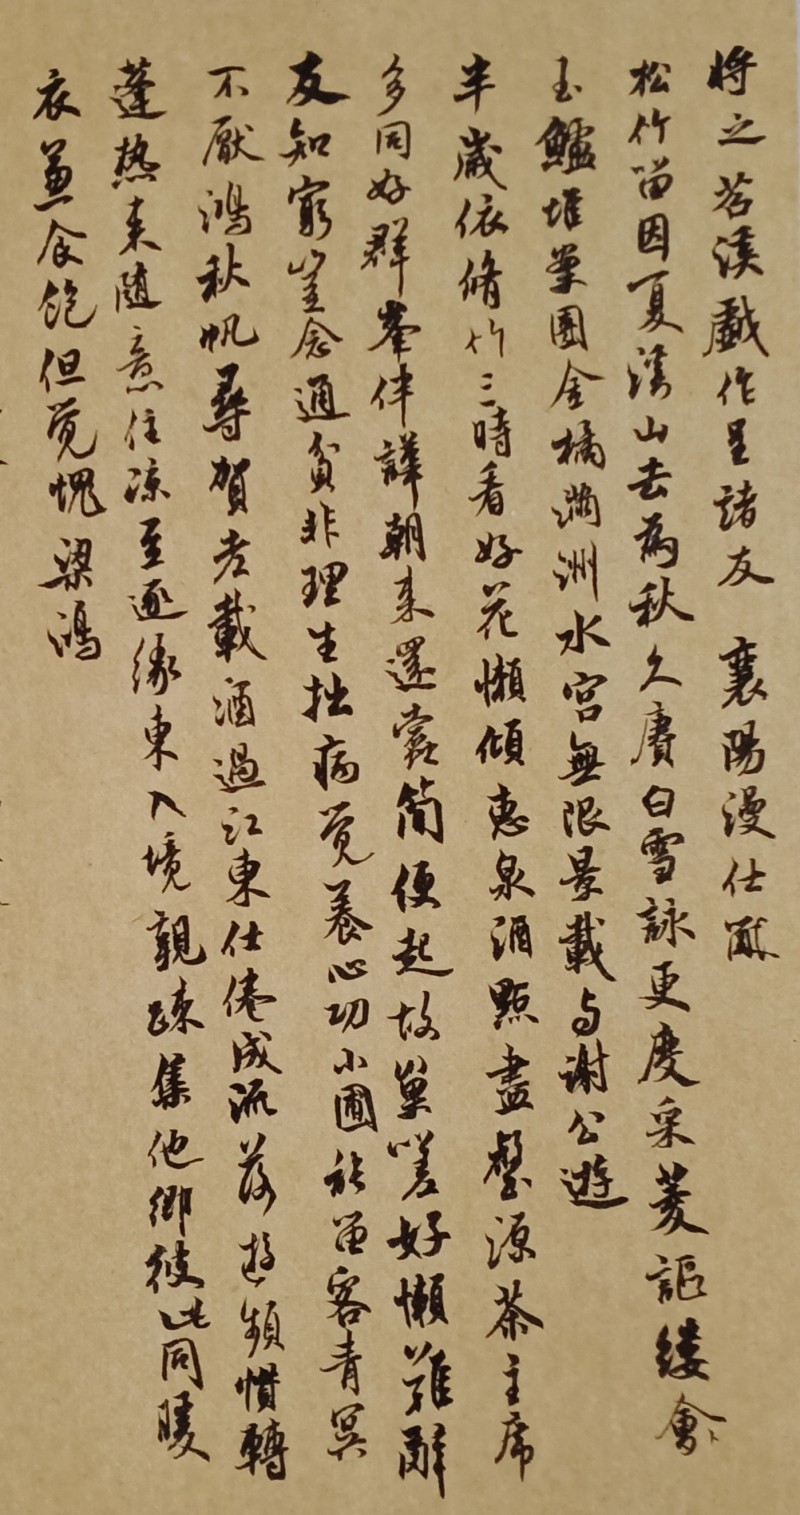 将之苕溪戲作呈諸友 襄陽漫仕黻
松竹留因夏溪山去為秋久賡白雪詠更度采菱謳縷會
玉鱸堆案團金橘滿洲水宮無限景載与謝公遊
半歲依脩竹三時看好花懶傾惠泉酒點盡壑源茶主席
多同好群峯伴譁朝来還蠹簡便起故巢嗟好懶難辭
友知窮豈念通貧非理生拙病覚養心功小圃能留客青冥
不厭鴻秋帆尋賀老載酒過江東仕倦成流落遊頻慣轉
蓬热来隨意住凉至逐緣東入境親疎集他鄉彼此同暖
衣兼食飽但覚愧梁鴻